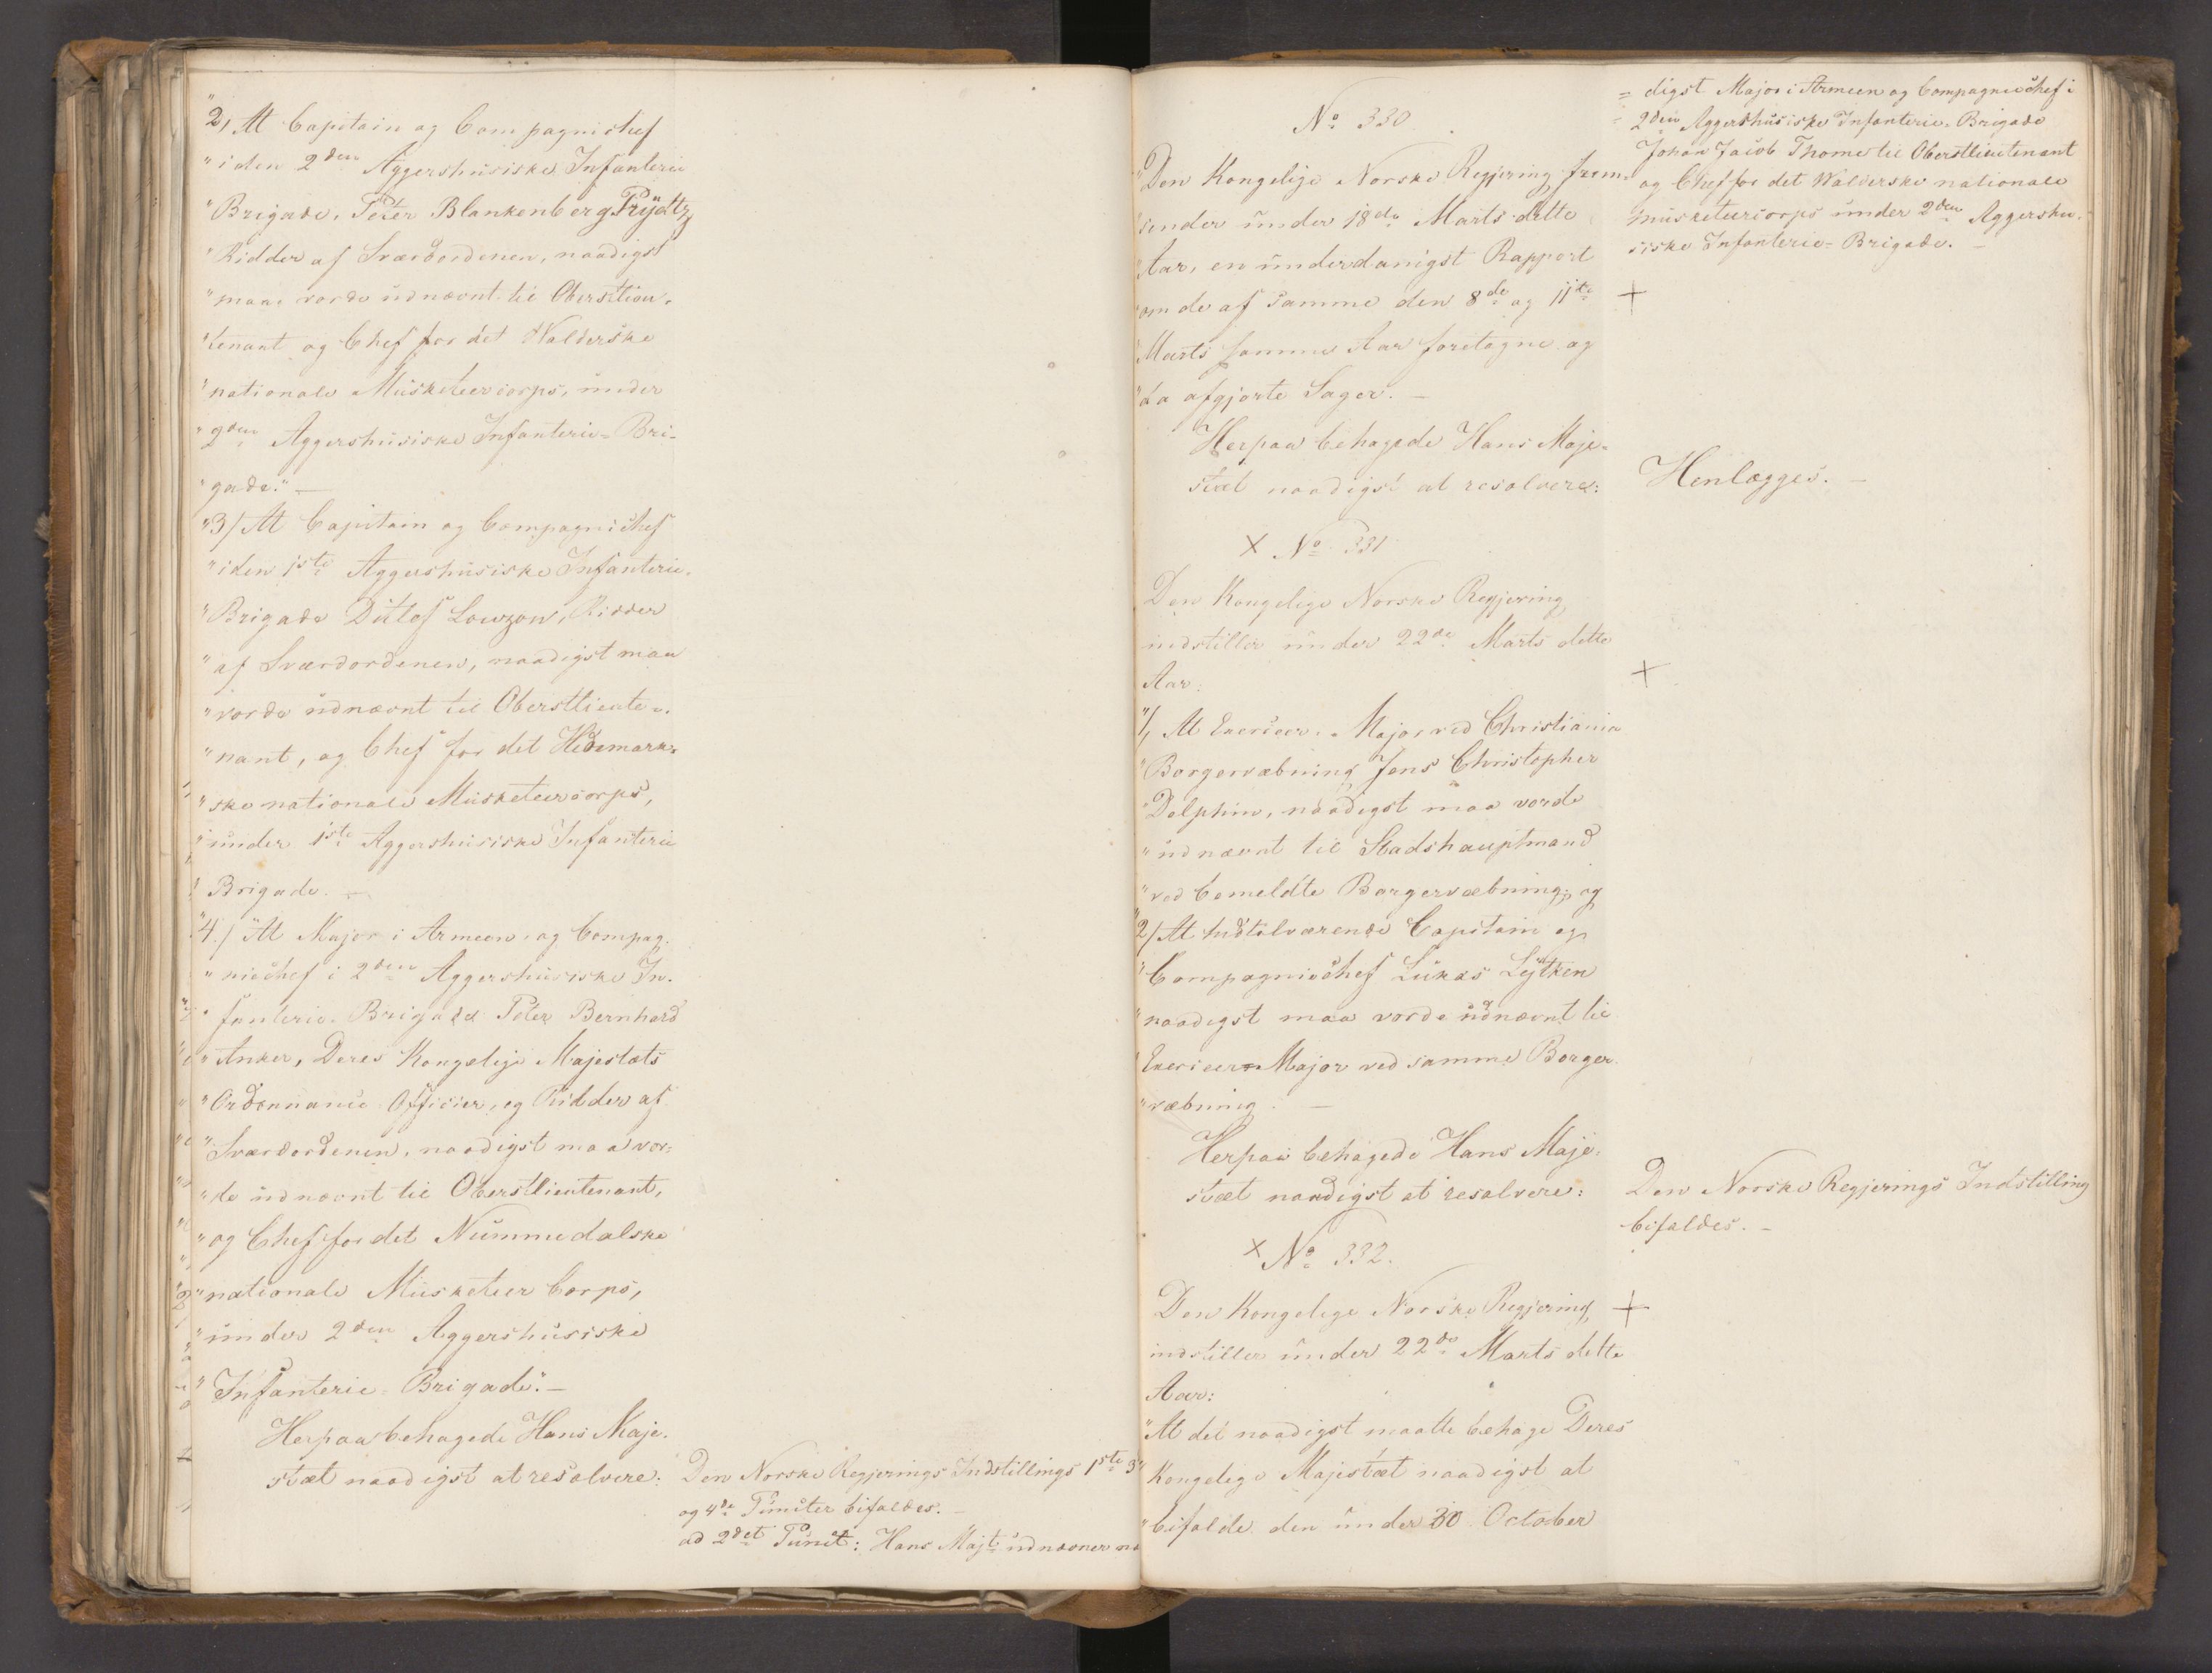 "2, At Capitain og Compagnichef
"i den 2den Aggershusiske Infanterie
"Brigade, Peter Blankenberg Prydtz,
"Ridder af Sværdordenen, naadigst
"maae vorde udnævnt til Oberstlieu-
"tenant og Chef for det Walderske
"nationale Musketeercorps, under
"2den Aggershusiske Infanterie-Bri-
"gade." —
"3/ At Capitain og Compagnichef
"i den 1ste Aggershusiske Infanterie-
"Brigade Ditlof Lowzow, Ridder
"af Sværdordenen, naadigst maa
"vorde udnævnt til Oberstlieute-
"nant, og Chef for det Hedemark-
"ske nationale Musketeercorps,
"under 1ste Aggershusiske Infanterie
"Brigade. —
"4./ At Major i Armeen og Compag-
"niechef i 2den Aggershusiske In-
"fanterie Brigade Peter Bernhard
"Anker, Deres Kongelige Majestæts
"Ordonnance Officier, og Ridder af
"Sværdordenen, naadigst maa vor-
"de udnævnt til Oberstlieutenant,
"og Chef for det Nummedalske
"nationale Musketeer Corps,
"under 2den Aggershusiske
"Infanterie-Brigade." —
Herpaa behagede Hans Maje-
stæt naadigst at resolvere:
Den Norske Regjerings Indstillings 1ste 3
og 4de Puncter bifaldes. —
ad 2det Punct: Hans Majt. udnævner na
= digst Major i Armeen og Compagniechef i
2den Aggershusiske Infanterie-Brigade
Johan Jacob Thome til Oberstlieutenant
og Chef for det Walderske nationale
Musketeercorps under 2den Aggershu-
siske Infanterie-Brigade. —
No 330
"Den Kongelige Norske Regjering frem-
"sender under 18de Marts dette
"Aar, en underdanigst Rapport
"om de af Samme den 8de og 11te
Marts samme Aar foretagne og
"da afgjorte Sager. —
Herpaa behagede Hans Maje-
stæt naadigst at resolvere:
Henlægges. —
X No 331
Den Kongelige Norske Regjering
indstiller under 22de Marts dette
Aar:
"1, At Exerceer-Major ved Christiania
"Borgervæbning Jens Christopher
"Dolphin, naadigst maa vorde
"udnævnt til Stadshauptmand
"ved bemeldte Borgervæbning; og
"2/ At hidtilværende Capitain og
"Compagniechef Lukas Lytken
"naadigst maa vorde udnævnt til
"Exerceer-Major ved samme Borger-
"væbning. —
Herpaa behagede Hans Maje-
stæt naadigst at resolvere:
Den Norske Regjerings Indstilling
bifaldes. —
X No 332.
Den Kongelige Norske Regjering
indstiller under 22de Marts dette
Aar:
"At det naadigst maatte behage Deres
"Kongelige Majestæt naadigst at
"bifalde den under 30 October